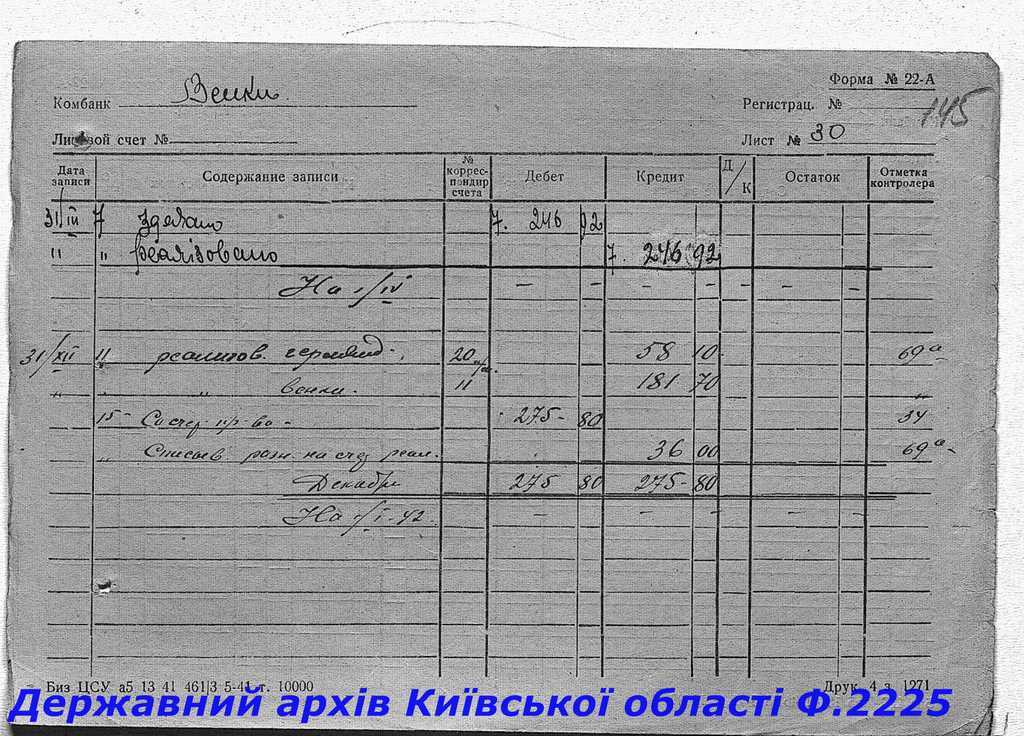 Форма № 22-А
Комбанк Венки.
Регистрац. № 145
Лицевой счет №
Лист № 30
Дата записи Содержание записи № коррес-пондир счета Дебет Кредит Д/К Остаток Отметка контролера
31/III 7 здедано 7. 246 92
" " реалізовано 7. 246 92
На 1/IV — — — — — — —
31/XII 11 реализов. 20 58 10 69а
" " " венки. 11 181 70 "
15 - 275- 80 34
" Списыв на реал. 36 00 69а-
Декабрь 275 80 275- 80
На 1/I-42. — — — — —
Биз ЦСУ а5 13 41 461|3 5-41 т. 10000
Друк. 4 з. 1271
Державний архів Київської області Ф.2225